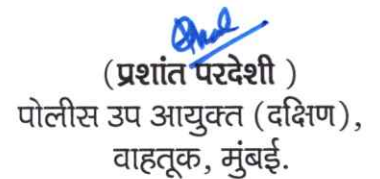 (प्रशांत परदेशी )
पोलीस उप आयुक्त (दक्षिण),
वाहतूक, मुंबई.